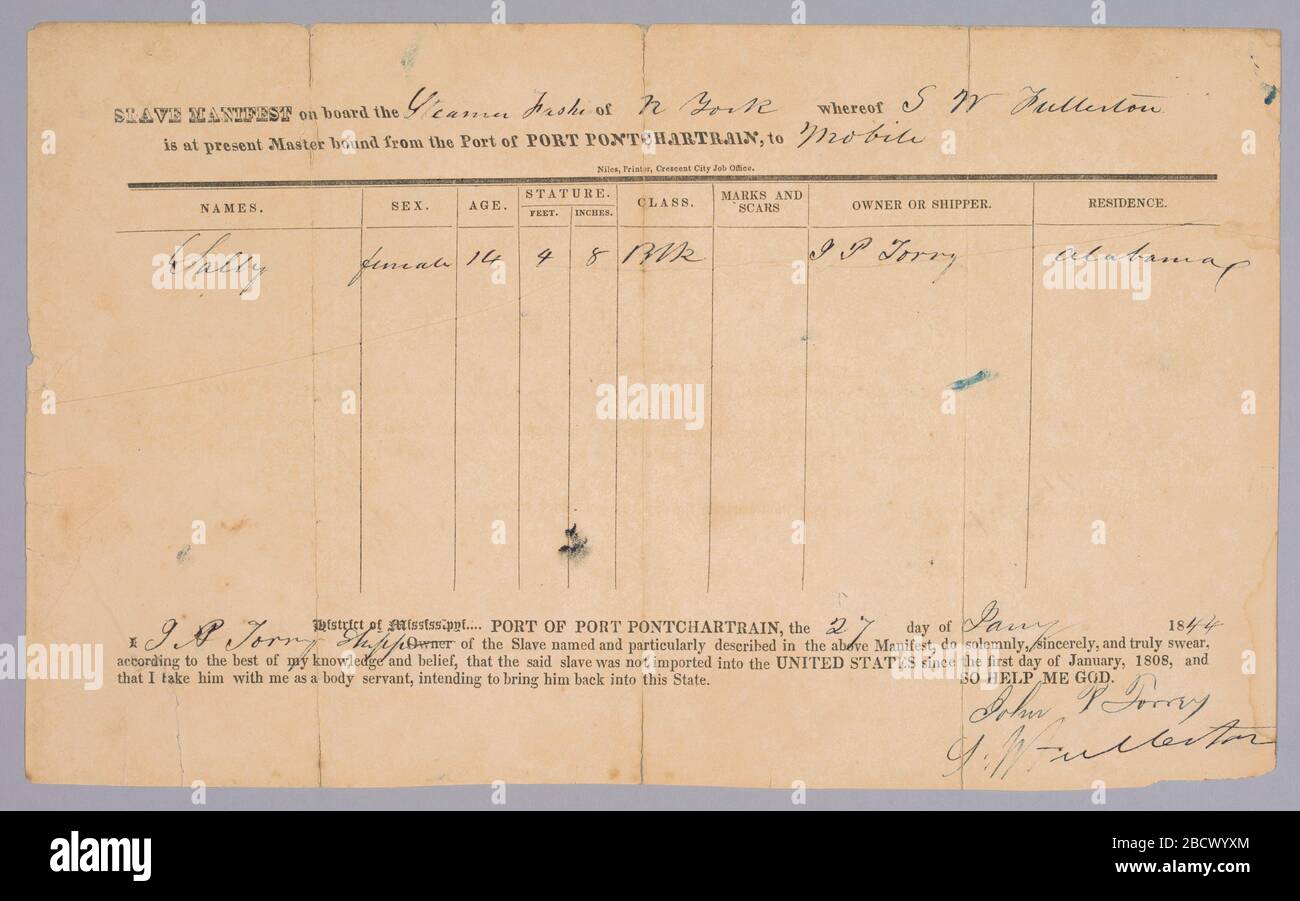 SLAVE MANIFEST on board the Steamer Fashn of N York whereof S W Fullerton
is at present Master bound from the Port of PORT PONTCHARTRAIN, to Mobile
Niles, Printer, Crescent City Job Office.
NAMES. SEX. AGE. STATURE. FEET. INCHES. CLASS. MARKS AND SCARS OWNER OR SHIPPER. RESIDENCE.
Sally female 14 4 8 Blk J P Torry Alabama
District of Mississippi.... PORT OF PORT PONTCHARTRAIN, the 27 day of Jany 1844
I, J P Torry Shipp Owner of the Slave named and particularly described in the above Manifest, do solemnly, sincerely, and truly swear,
according to the best of my knowledge and belief, that the said slave was not imported into the UNITED STATES since the first day of January, 1808, and
that I take him with me as a body servant, intending to bring him back into this State. SO HELP ME GOD.
John P Torry
S. W Fullerton
alamy
Image ID: 2BCWYXM
www.alamy.com